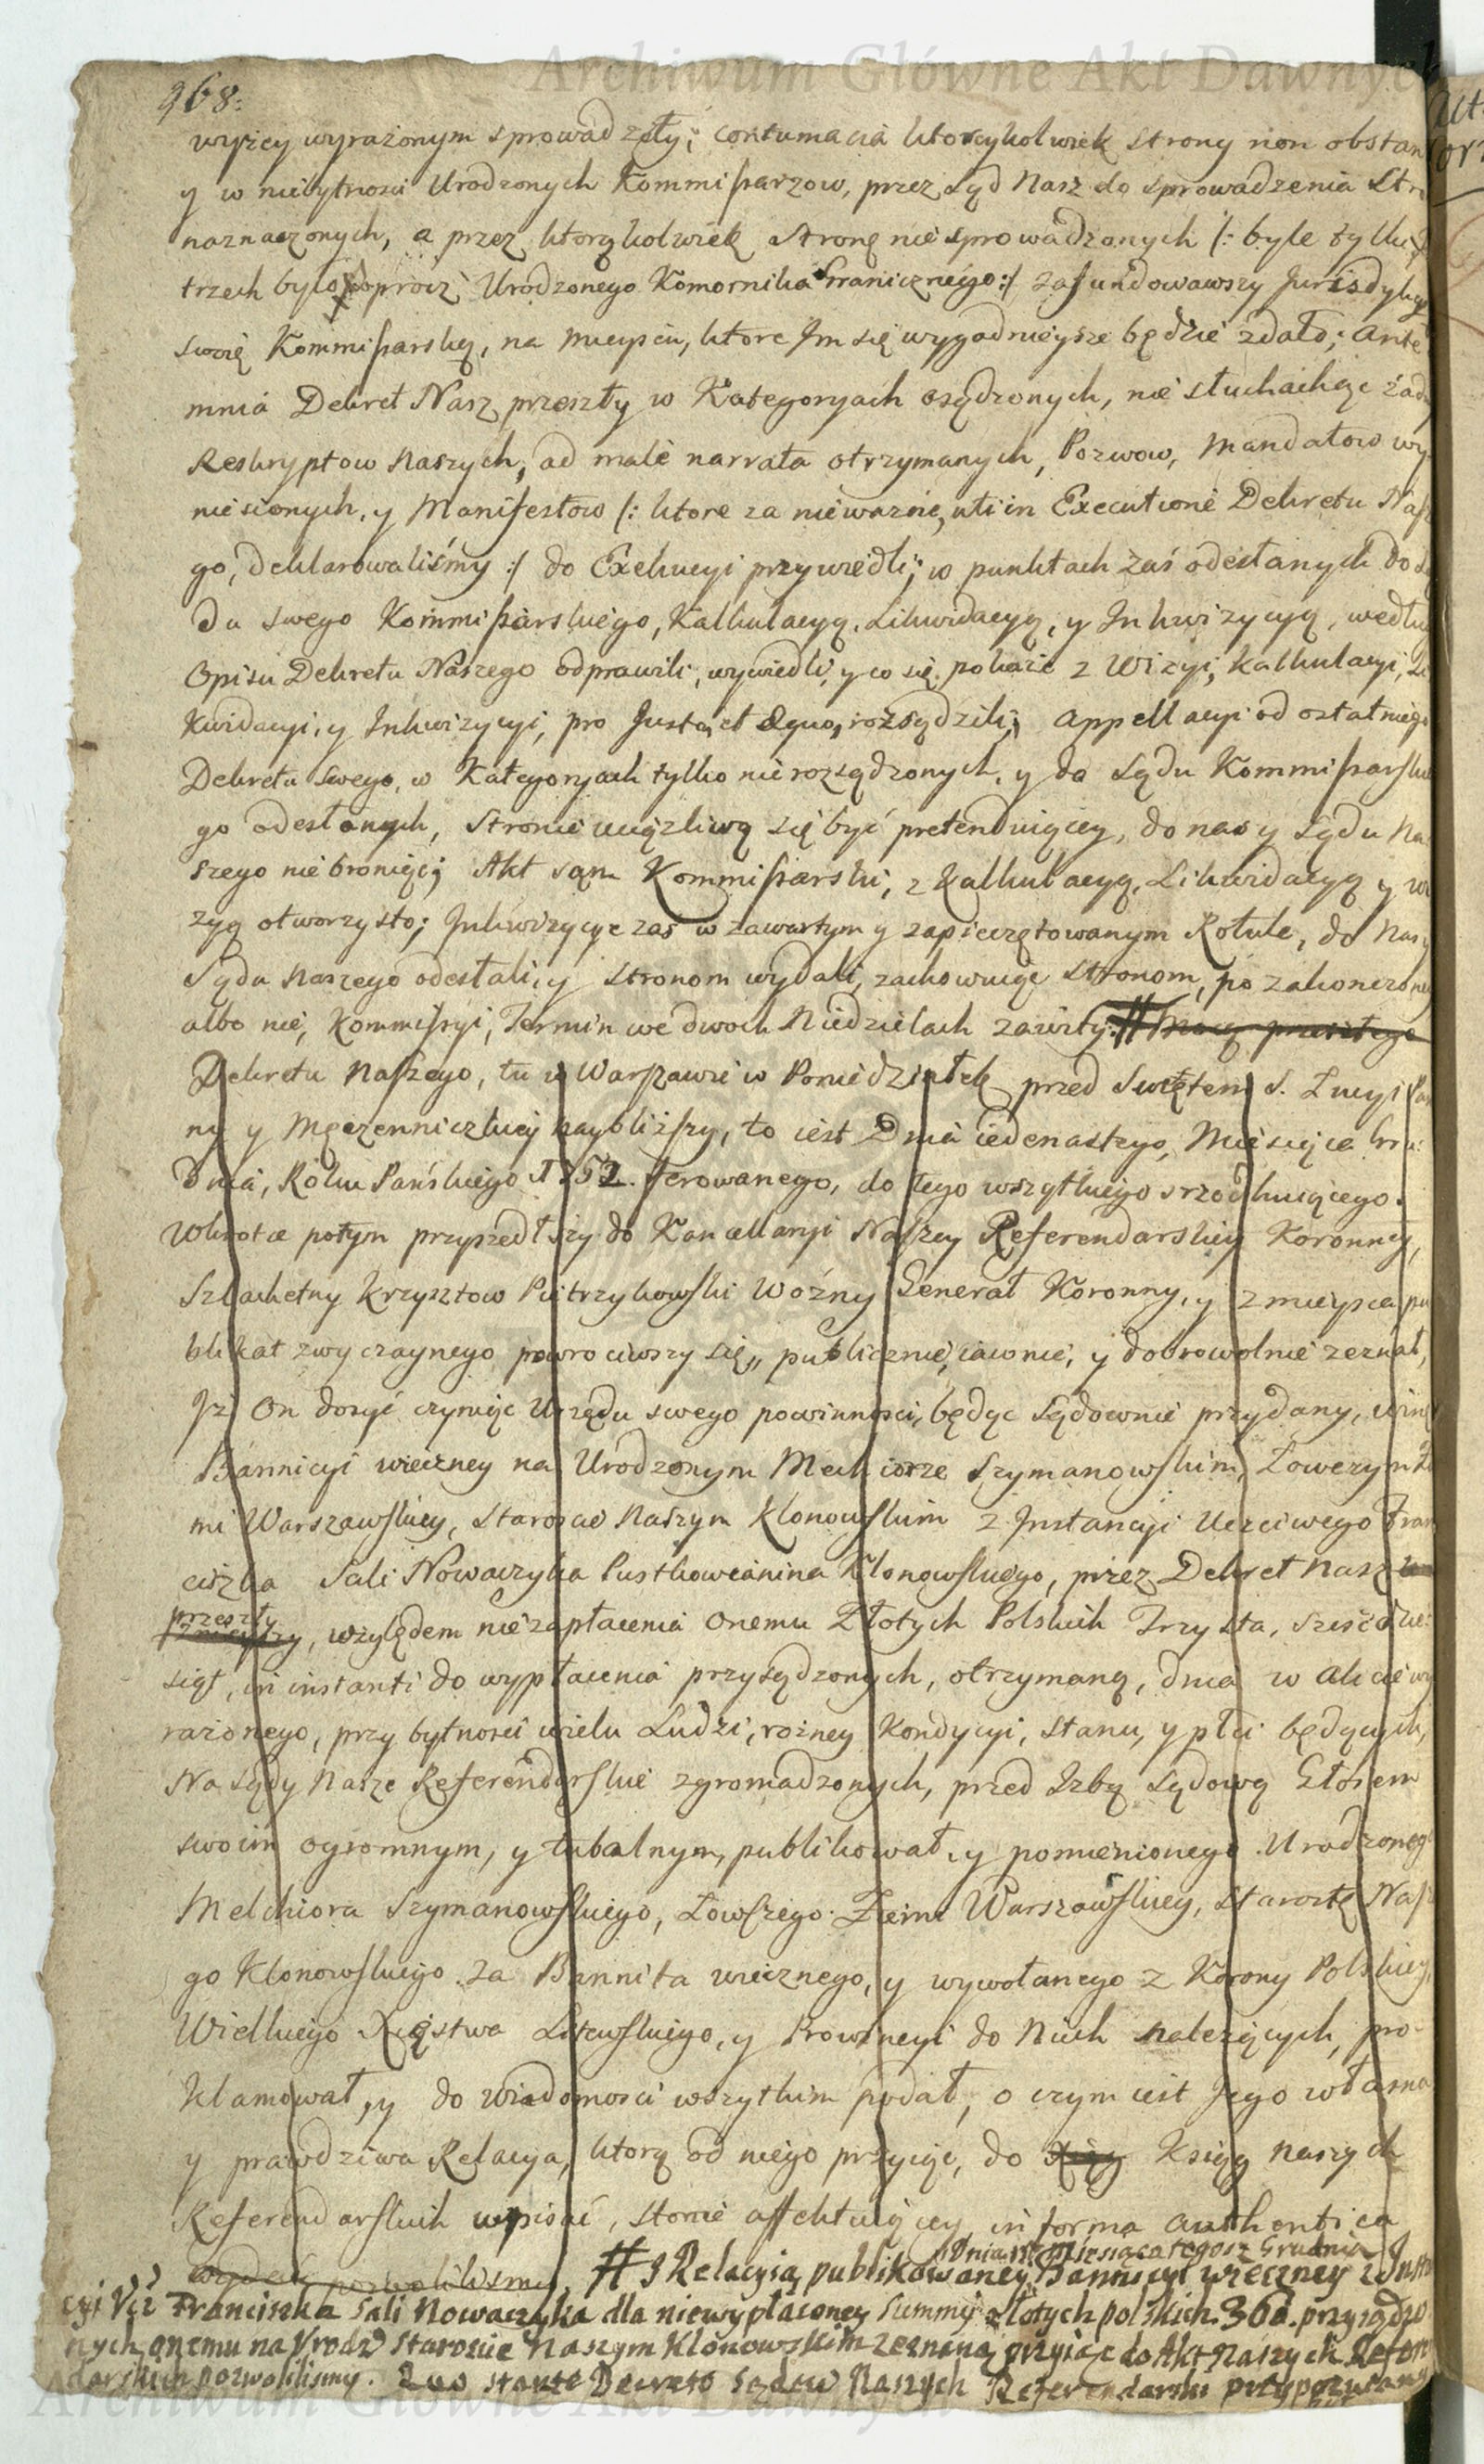 Archiwum Główne Akt Dawnych
968.
wyżey wyrażonym sprowadzały; contumacia ktoreykolwiek strony non obstan
y w niebytnosci Urodzonych Kommissarzow, przez Sąd Nasz do sprowadzenia Stro
naznaczonych, a przez ktorąkolwiek Stronę nie sprowadzonych /: byle tylko
trzech było oprocz Urodzonego Komornika Granicznego :/ zafundowawszy Jurisdykcyą
swoię Kommissarską, na mieyscu, ktore Im się wygodnieysze będzie zdało; ante
mnia Dekret Nasz przeszły w Kategoryach osądzonych, nie słuchaiąc żad
Reskryptow Naszych, ad male narrata otrzymanych, Pozwow, Mandatow wy
niesionych, y Manifestow /: ktore za nieważne, uti in Executione Dekretu Nasze
go, deklarowaliśmy :/ do Exekucyi przywiedli; w punktach zaś odesłanych do Są
du swego Kommissarskiego, Kalkulacyą, Likwidacyą, y Inkwizycyą, według
Opisu Dekretu Naszego odprawili, wywiedli, y co się pokaże z Wizyi, Kalkulacyi, Li
kwidacyi, y Inkwizycyi, pro Justo et Aequo, rozsądzili; Appellacyi od ostatniego
Dekretu swego, w Kategoryach tylko nierozsądzonych, y do Sądu Kommissarskie
go odesłanych, Stronie uciążliwą się być pretenduiącey, do nas y Sądu Na
szego nie broniąc; Akt sam Kommissarski, z Kalkulacyą, Likwidacyą y wi
zyą otworzysto; Inkwizycye zaś w zawartym y zapieczętowanym Rotule, do Nas y
Sądu Naszego odesłali, y stronom wydali, zachowuiąc stronom, po zakonczoney
albo nie, Kommissyi, Termin we dwoch Niedzielach zawity. # Mocą przeszłego
Dekretu Naszego, tu w Warszawie w Poniedziałek przed Swiętem S. Łucyi Pan
ny y Męczenniczkiey naybliższy, to iest Dnia iedenastego, Miesiąca Gru
dnia, Roku Pańskiego 1752. ferowanego, do tego wszytkiego srzodkuiącego.
Wkrotce potym przyszedłszy do Kancellaryi Naszey Referendarskiey Koronney,
Szlachetny Krzysztow Pietrzykowski Woźny Generał Koronny, y z mieysca pu
blikat zwyczaynego powrociwszy się, publicznie, iawnie, y dobrowolnie zeznał,
Iż On dosyć czyniąc Urzędu swego powinnosci, będąc sądownie przydany, winę
Bannicyi wieczney na Urodzonym Melchiorze Szymanowskim, Łowczym Zie
mi Warszawskiey, Staroscie Naszym Klonowskim z Instancyi Uczciwego Fran
ciszka Sali Nowaczyka Pustkowianina Klonowskiego, przez Dekret Nasz
przeszły, względem niezapłacenia onemu Złotych Polskich Trzysta, szesćdzie
siąt, in instanti do wypłacenia przysądzonych, otrzymaną, dnia w Akcie wy
rażonego, przy bytnosci wielu Ludzi, rożney Kondycyi, stanu, y płci będących,
Na Sądy Nasze Referendarskie zgromadzonych, przed Izbą Sądową Głosem
swoim ogromnym, y tubalnym, publikował, y pomienionego Urodzonego
Melchiora Szymanowskiego, Łowszego Ziemi Warszawskiey, Starostę Nasze
go Klonowskiego za Bannita wiecznego, y wywołanego z Korony Polskiey,
Wielkiego Xięstwa Litewskiego, y Prowincyi do Nich należących, pro-
klamował, y do wiadomosci wszytkim podał, o czym iest Jego własna
y prawdziwa Relacya, ktorą od niego przyiąć, do Xiąg Ksiąg naszych
Referendarskich wpisać, stronie affektuiącey in forma authentica
wydać pozwoliliśmy. # I Relacyią publikowaney Dnia 12 Miesiąca tegosz Grudnia Bannicyi wieczney z Instan
cyi Ucz Franciszka Sali Nowaczyka dla niewypłaconey Summy złotych polskich 360. przysądzo
nych onemu na Urodz Staroscie Naszym Klonowskim zeznaną przyiąć do Akt Naszych Referen
darskich pozwolilismy. Quo stante Decreto Sądow Naszych Referendarski przypozwany
Archiwum Główne Akt Dawnych